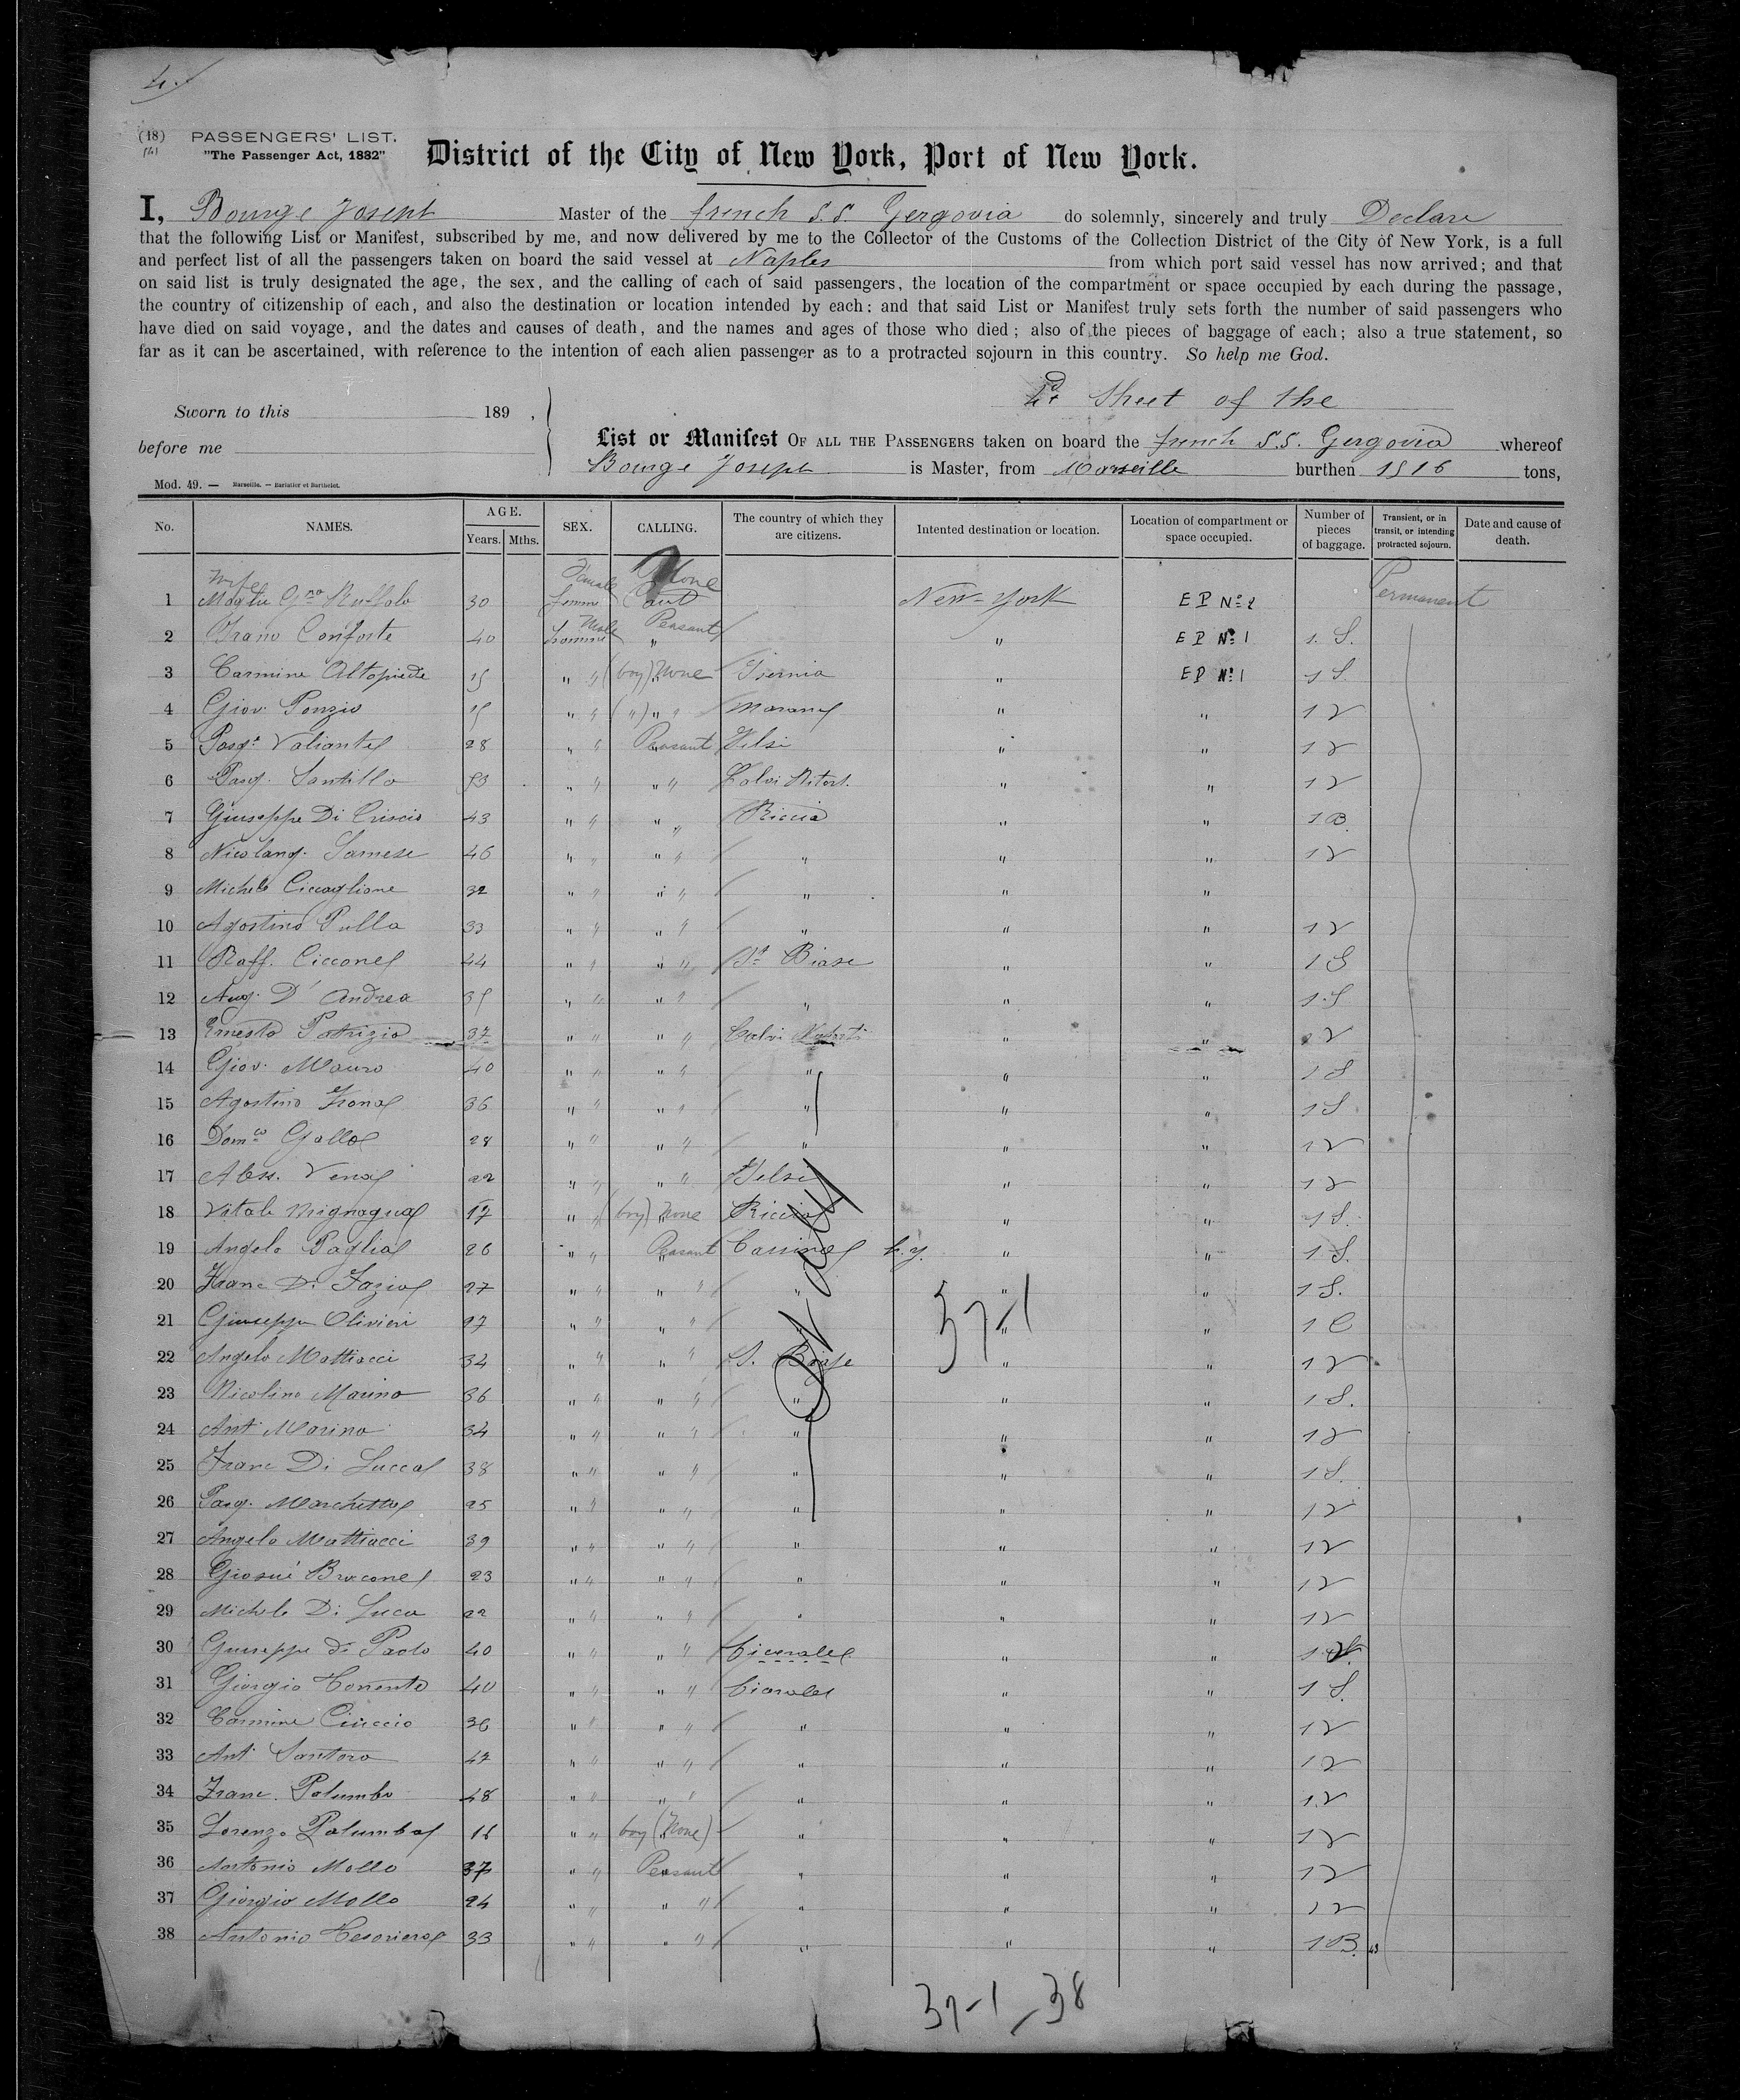 4.
(18) PASSENGERS' LIST.
"The Passenger Act, 1882"
District of the City of New York, Port of New York.
I, Bourge Joseph Master of the french S.S. Gergovia do solemnly, sincerely and truly Declare
that the following List or Manifest, subscribed by me, and now delivered by me to the Collector of the Customs of the Collection District of the City of New York, is a full
and perfect list of all the passengers taken on board the said vessel at Naples from which port said vessel has now arrived; and that
on said list is truly designated the age, the sex, and the calling of each of said passengers, the location of the compartment or space occupied by each during the passage,
the country of citizenship of each, and also the destination or location intended by each: and that said List or Manifest truly sets forth the number of said passengers who
have died on said voyage, and the dates and causes of death, and the names and ages of those who died; also of the pieces of baggage of each; also a true statement, so
far as it can be ascertained, with reference to the intention of each alien passenger as to a protracted sojourn in this country. So help me God.
Sheet of the
Sworn to this 189 ,
before me
List or Manifest OF ALL THE PASSENGERS taken on board the french S.S. Gergovia whereof
Bourge Joseph is Master, from Marseille burthen 1816 tons,
Mod. 49. — Marseille. — Barlatier et Barthelet.
No. NAMES. AGE. Years. Mths. SEX. CALLING. The country of which they are citizens. Intented destination or location. Location of compartment or space occupied. Number of pieces of baggage. Transient, or in transit, or intending protracted sojourn. Date and cause of death.
Wife Female None Permanent
1 Moglie Gno Ruffolo 30 femme New-York EP No 2
Male Peasant
2 Frano Conforte 40 homme " " EP No 1 1 S.
3 Carmine Altopiede 15 " " (boy) None Isernia " EP No 1 1 S
4 Giov. Ponzio 15 " " (") " " " " 1 V
5 Pasq. Valiante 28 " " Peasant Jelsi " " 1 V
6 Pasq. Santillo 53 " " " " Calvi " " 1 V
7 Giuseppe Di Criscio 43 " " " " Riccia " " 1 B.
8 Nicolang. Sarnese 46 " " " " " " " 1 V
9 Michele Ciccaglione 32 " " " " " " "
10 Agostino Pulla 33 " " " " " " " 1 V
11 Raff. Ciccone 44 " " " " St Biase " " 1 S
12 Ang. D'Andrea 35 " " " " " " " 1 S
13 Ernesto Patrizio 37 " " " " Calvi " " V
14 Giov. Mauro 40 " " " " " " " 1 S
15 Agostino Izona 36 " " " " " " " 1 S
16 Domco Gallo 28 " " " " " " " 1 V
17 Aless. Vena 22 " " " " Jelsi " " 1 V
18 Vitale Mignogna 17 " " (boy) None Riccia " " 1 S.
19 Angelo Paglia 26 " " Peasant Cassino h.y. " " 1 S.
20 Franc Di Fazio 27 " " " " " " " 1 S.
21 Giuseppe Olivieri 27 " " " " " " 1 C
22 Angelo Mattiacci 34 " " " " S. Biase " " 1 V
23 Nicolino Marino 36 " " " " " " " 1 S.
24 Ant. Marino 34 " " " " " " " 1 V
25 Franc Di Lucca 38 " " " " " " " 1 S.
26 Pasq. Marchetta 25 " " " " " " " 1 V
27 Angelo Mattiacci 39 " " " " " " " 1 V
28 Giosué Bracone 23 " " " " " " " 1 V
29 Michele Di Luca 22 " " " " " " " 1 V
30 Giuseppe di Paolo 40 " " " Cicerale " " 1
31 Giorgio Conente 40 " " " " Cicerale " " 1 S.
32 Carmine Ciuccio 36 " " " " " " " 1 V
33 Ant. Santoro 42 " " " " " " " 1 V
34 Franc. Palumbo 48 " " " " " " " 1 V
35 Lorenzo Palumbo 16 " " boy (None) " " " 1 V
36 Antonio Mollo 37 " " Peasant " " " 1 V
37 Giorgio Mollo 24 " " " " " " " 1 V
38 Antonio Tesoriero 33 " " " " " " " 1 B.
Italy
37-1
37-1-38